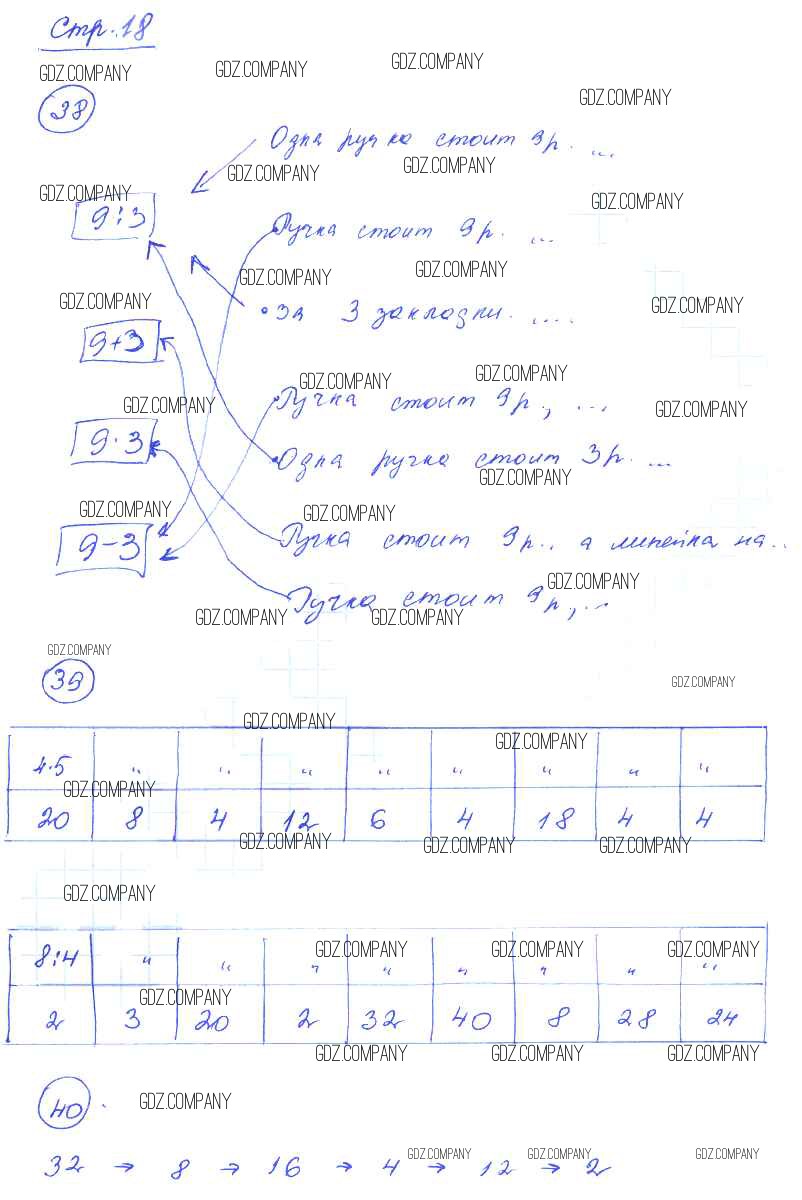 Стр. 18
GDZ.COMPANY GDZ.COMPANY GDZ.COMPANY
GDZ.COMPANY
38
Одна ручка стоит 9р. ...
GDZ.COMPANY GDZ.COMPANY
GDZ.COMPANY GDZ.COMPANY
9:3
Ручка стоит 9р. ...
GDZ.COMPANY GDZ.COMPANY
GDZ.COMPANY GDZ.COMPANY
• За 3 закладки. ....
9+3
GDZ.COMPANY GDZ.COMPANY
GDZ.COMPANY Ручка стоит 9р., ... GDZ.COMPANY
9·3
Одна ручка стоит 3р. ...
GDZ.COMPANY
GDZ.COMPANY GDZ.COMPANY
9-3
Ручка стоит 9р., а линейка на..
GDZ.COMPANY
Ручка стоит 9р., ...
GDZ.COMPANY GDZ.COMPANY
GDZ.COMPANY
39
GDZ.COMPANY
GDZ.COMPANY
GDZ.COMPANY
4·5 " " " " " " " "
GDZ.COMPANY
20 8 4 12 6 4 18 4 4
GDZ.COMPANY GDZ.COMPANY GDZ.COMPANY
GDZ.COMPANY
GDZ.COMPANY GDZ.COMPANY GDZ.COMPANY
8:4 " " " " " " " "
GDZ.COMPANY
2 3 20 2 32 40 8 28 24
GDZ.COMPANY GDZ.COMPANY GDZ.COMPANY
40.
GDZ.COMPANY
GDZ.COMPANY GDZ.COMPANY GDZ.COMPANY
32 → 8 → 16 → 4 → 12 → 2